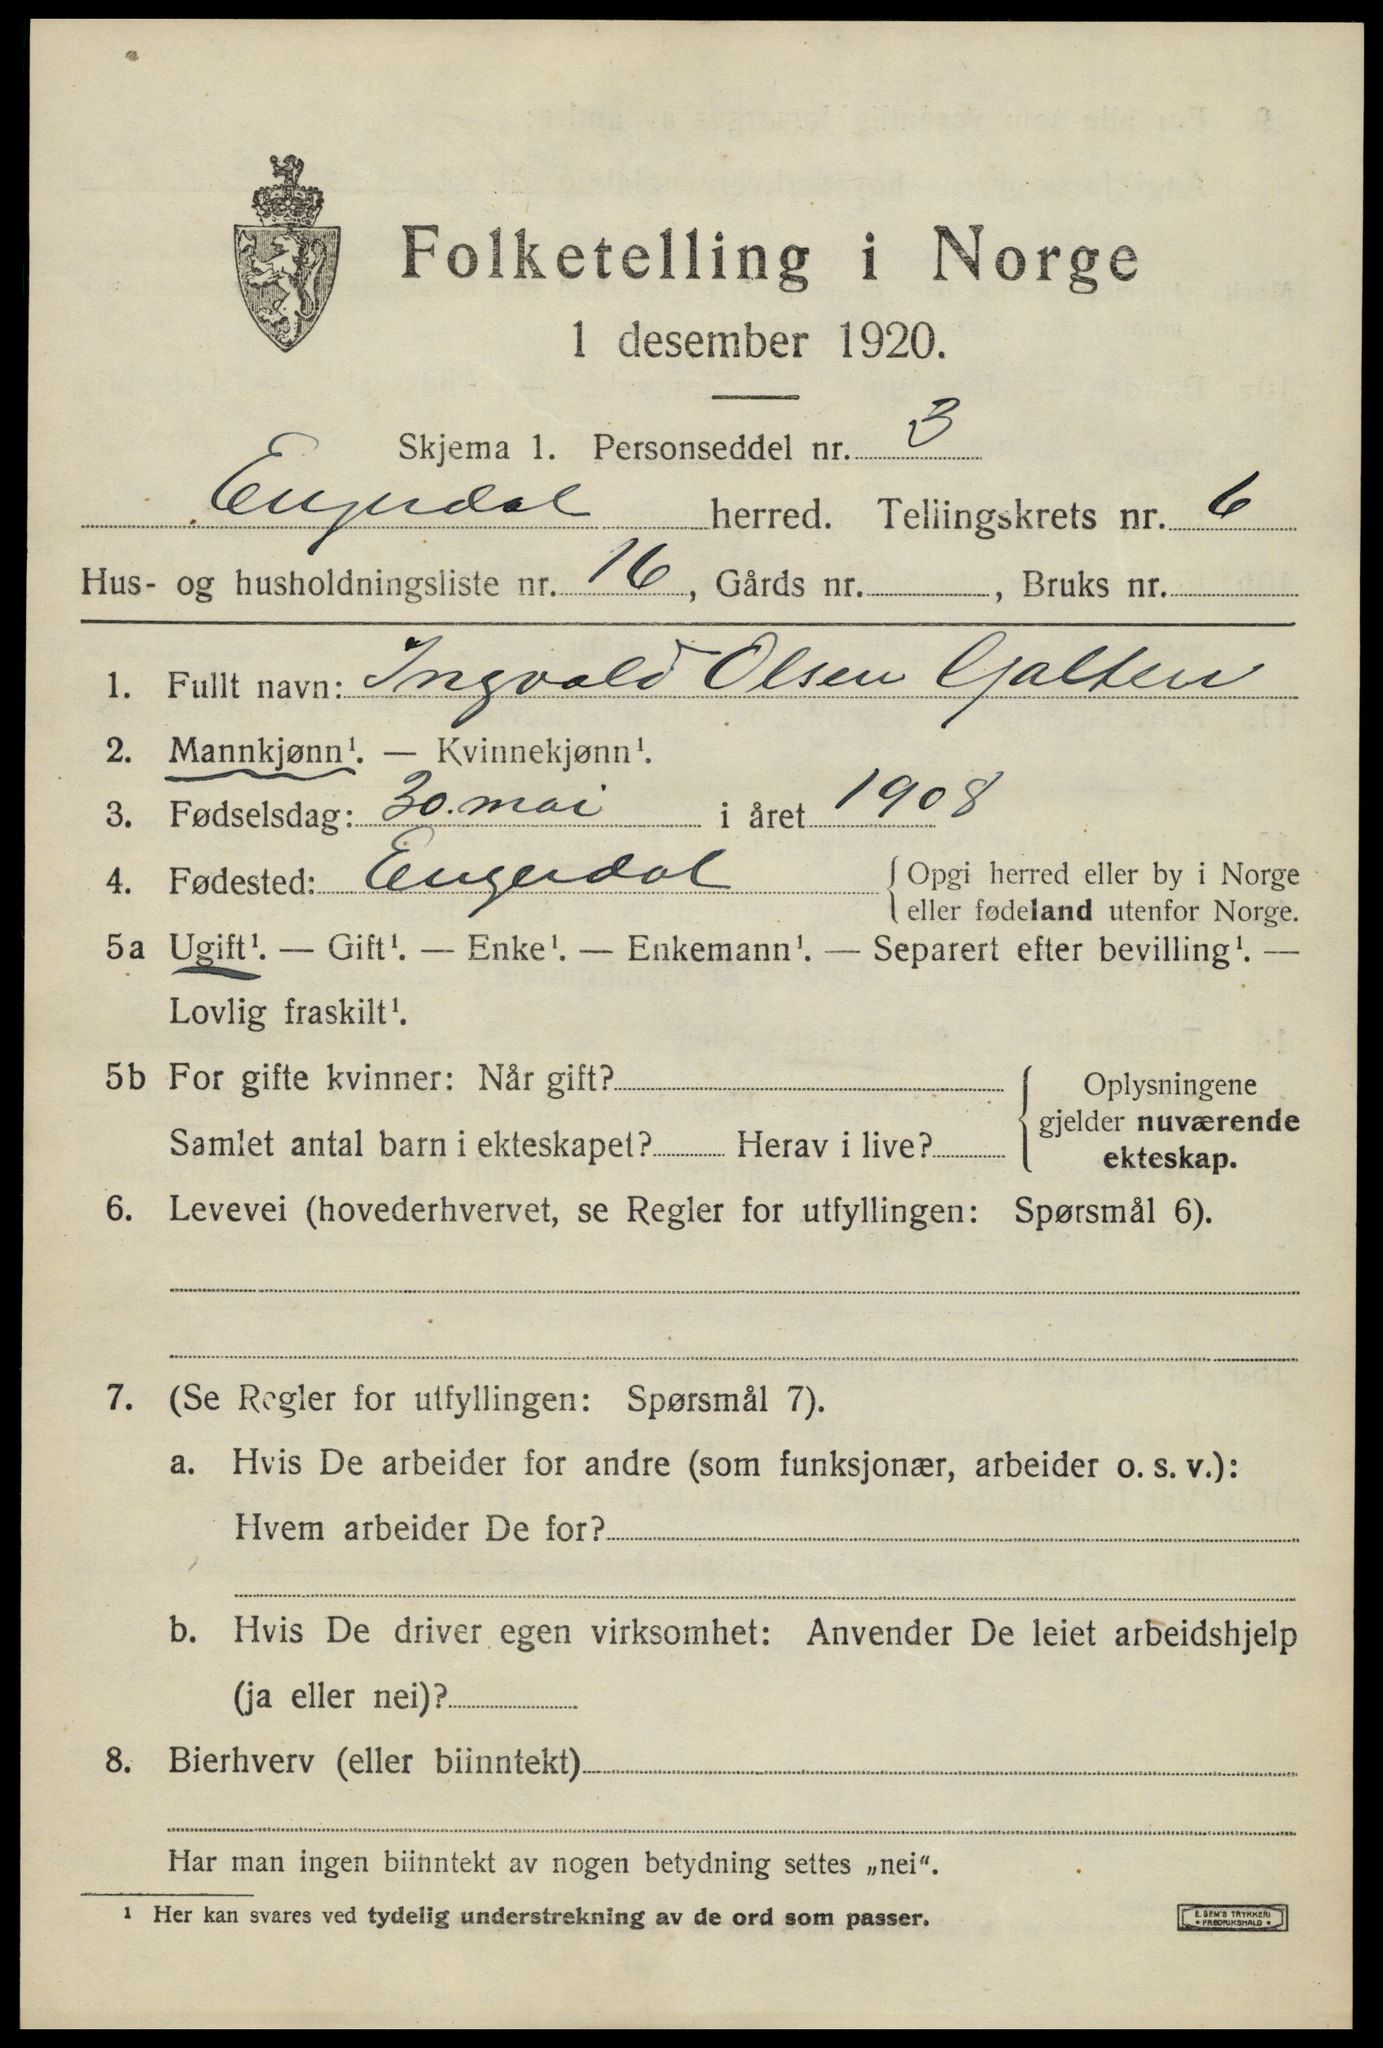 Folketelling i Norge
1 desember 1920.
Skjema 1. Personseddel nr. 3
Engerdal herred. Tellingskrets nr. 6
Hus- og husholdningsliste nr. 16, Gårds nr. , Bruks nr.
1. Fullt navn: Ingvald Olsen Galten
2. Mannkjønn¹. — Kvinnekjønn¹.
3. Fødselsdag: 30. mai i året 1908
4. Fødested: Engerdal { Opgi herred eller by i Norge
eller fødeland utenfor Norge.
5a Ugift¹. — Gift¹. — Enke¹. — Enkemann¹. — Separert efter bevilling¹. —
Lovlig fraskilt¹.
5b For gifte kvinner: Når gift?
Samlet antal barn i ekteskapet? Herav i live?
{ Oplysningene
gjelder nuværende
ekteskap.
6. Levevei (hovederhvervet, se Regler for utfyllingen: Spørsmål 6).
7. (Se Regler for utfyllingen: Spørsmål 7).
a. Hvis De arbeider for andre (som funksjonær, arbeider o. s. v.):
Hvem arbeider De for?
b. Hvis De driver egen virksomhet: Anvender De leiet arbeidshjelp
(ja eller nei)?
8. Bierhverv (eller biinntekt)
Har man ingen biinntekt av nogen betydning settes „nei“.
¹ Her kan svares ved tydelig understrekning av de ord som passer.
E. SEM'S TRYKKERI
FREDRIKSHALD